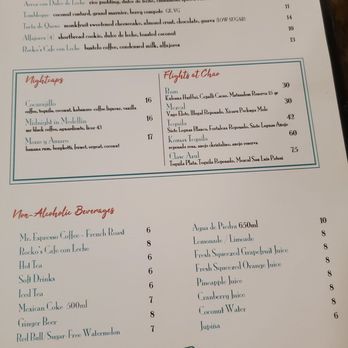 Arroz con Dulce de Leche
Tembleque: coconut custard, grand marnier, berry compote GF, VG 11
Torta de Queso: monkfruit sweetened cheesecake, almond crust, chocolate, guava (LOW SUGAR) 14
Alfajores (4) shortbread cookie, dulce de leche, toasted coconut 8
Rocko's Cafe con Leche: bustelo coffee, condensed milk, alfajores 13
Nightcaps
Cocotyollo 16
coffee, tequila, coconut, kahannoe coffee liqueur, vanilla
Midnight in Medellin 16
mr black coffee, aguardiente, licor 43
Mono y Amaro 17
banana rum, braulio, fernet, orgeat, coconut
Flights at Chao
Rum 30
Mezcal 30
Tequila 42
Siete Leguas Blanco, Fortaleza Reposado, Siete Leguas Añejo
Komos Tequila 60
reposado rosa, añejo cristalino, añejo reserva
Clase Azul 75
Tequila Plata, Tequila Reposado, Mezcal San Luis Potosi
Non-Alcoholic Beverages
Mr. Espresso Coffee - French Roast 6
Rocko's Cafe con Leche 8
Hot Tea 6
Soft Drinks 6
Iced Tea 6
Mexican Coke 500ml 7
Ginger Beer 8
Red Bull/Sugar-Free/Watermelon 7
Agua de Piedra 650ml 10
Lemonade / Limeade 8
Fresh Squeezed Grapefruit Juice 8
Fresh Squeezed Orange Juice 8
Pineapple Juice 8
Cranberry Juice 8
Coconut Water 8
Jupiña 6